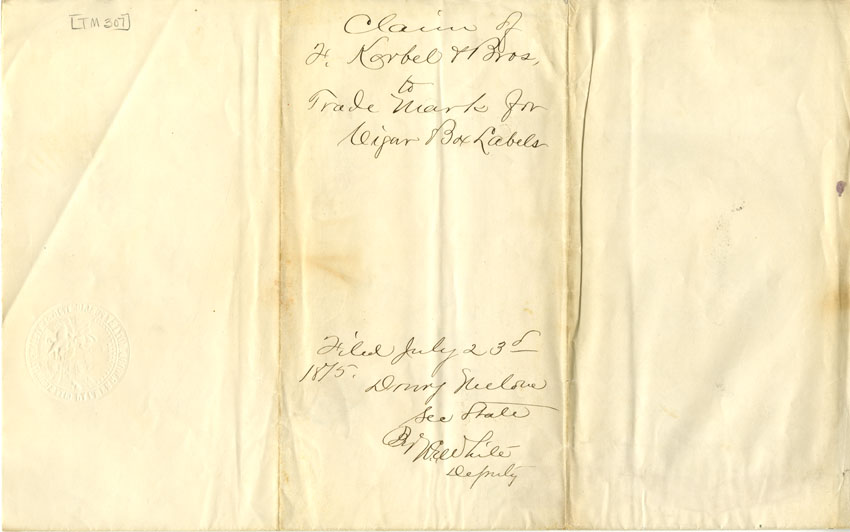 [TM 307]
Claim of
F. Korbel & Bros.
to
Trade Mark for
Cigar Box Labels
Filed July 23d
1875.
Drury Melone
Sec State
By
White
Deputy